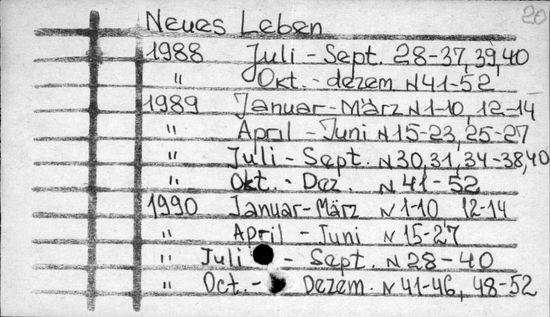 20
Neues Leben
1988 Juli - Sept. 28-37, 39, 40
" Okt. - dezem N41-52
1989 Januar - März N1-10, 12-14
" April - Juni N15-23, 25-27
" Juli - Sept. N30, 31, 34-38, 40
" Okt. - Dez. N41-52
1990 Januar - März N1-10 12-14
" April - Juni N15-27
" Juli - Sept. N28-40
" Oct. - Dezem. N41-46, 48-52